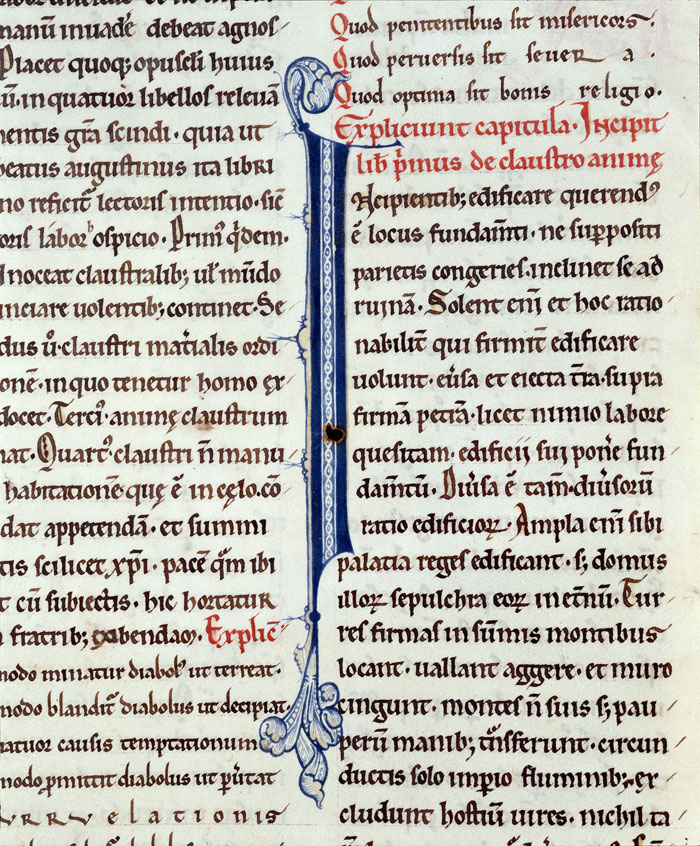 manum inuadē debeat agnos
Piacet quoq; opuscli huius
ū. in quatuor libellos releuā
nentis grā scindi · quia ut
beatus augustinus ita libri
no reficit̄ lectoris intentio · sic̄
oris labor hospicio · Primꝰ q̄dem ·
noceat claustralib; ul' mūdo
nciare uolentib; continet · Se
dus ū · claustri mat̄ialis ordi
onē · in quo tenetur homo ex
docet · Tercꝰ · animę claustrum
nat · Quartꝰ · claustri n̄ manu
habitationē quę ē in cęlo · cō
dat appetendā · et summi
tis scilicet xp̄i · pacē q̄m ibi
t cū subiectis · hic hortatur
fratrib; habendam · Explic̄
modo minatur diabolꝰ ut terreat ·
modo blandit̄ diabolus ut decipiat ·
atuor causis temptationum
modo ꝓmittit diabolus ut
uelationis
Quod penitentibus sit misericors ·
Quod peruersis sit seuera ·
Quod optima sit bonis religio ·
Expliciunt capitula · Incipit
lib' p̄mus de claustro animę
Incipientib; edificare querendꝰ
ē locus fundam̄ti · ne suppositi
parietis congeries · inclinet se ad
ruinā · Solent eni᷑ et hoc ratio
nabilit̄ qui firmit̄ edificare
uolunt · eūsa et eiecta t̄ra · supra
firmā petrā · licet nimio labore
quesitam · edificii sui pon̄e fun
dam̄tū · Diūsa ē tam̄ · diūsorū
ratio edificioꝝ · Ampla eni᷑ sibi
palatia reges edificant · s; domus
illoꝝ sepulchra eoꝝ in et̄nū · Tur
res firmas in sūmis montibus
locant · uallant aggere · et muro
cingunt · montes n̄ suis s; pau
perū manib; t̄nsferunt · circun
ductis solo imp̄io fluminib; · ex
cludunt hostiū uires · nichil ta